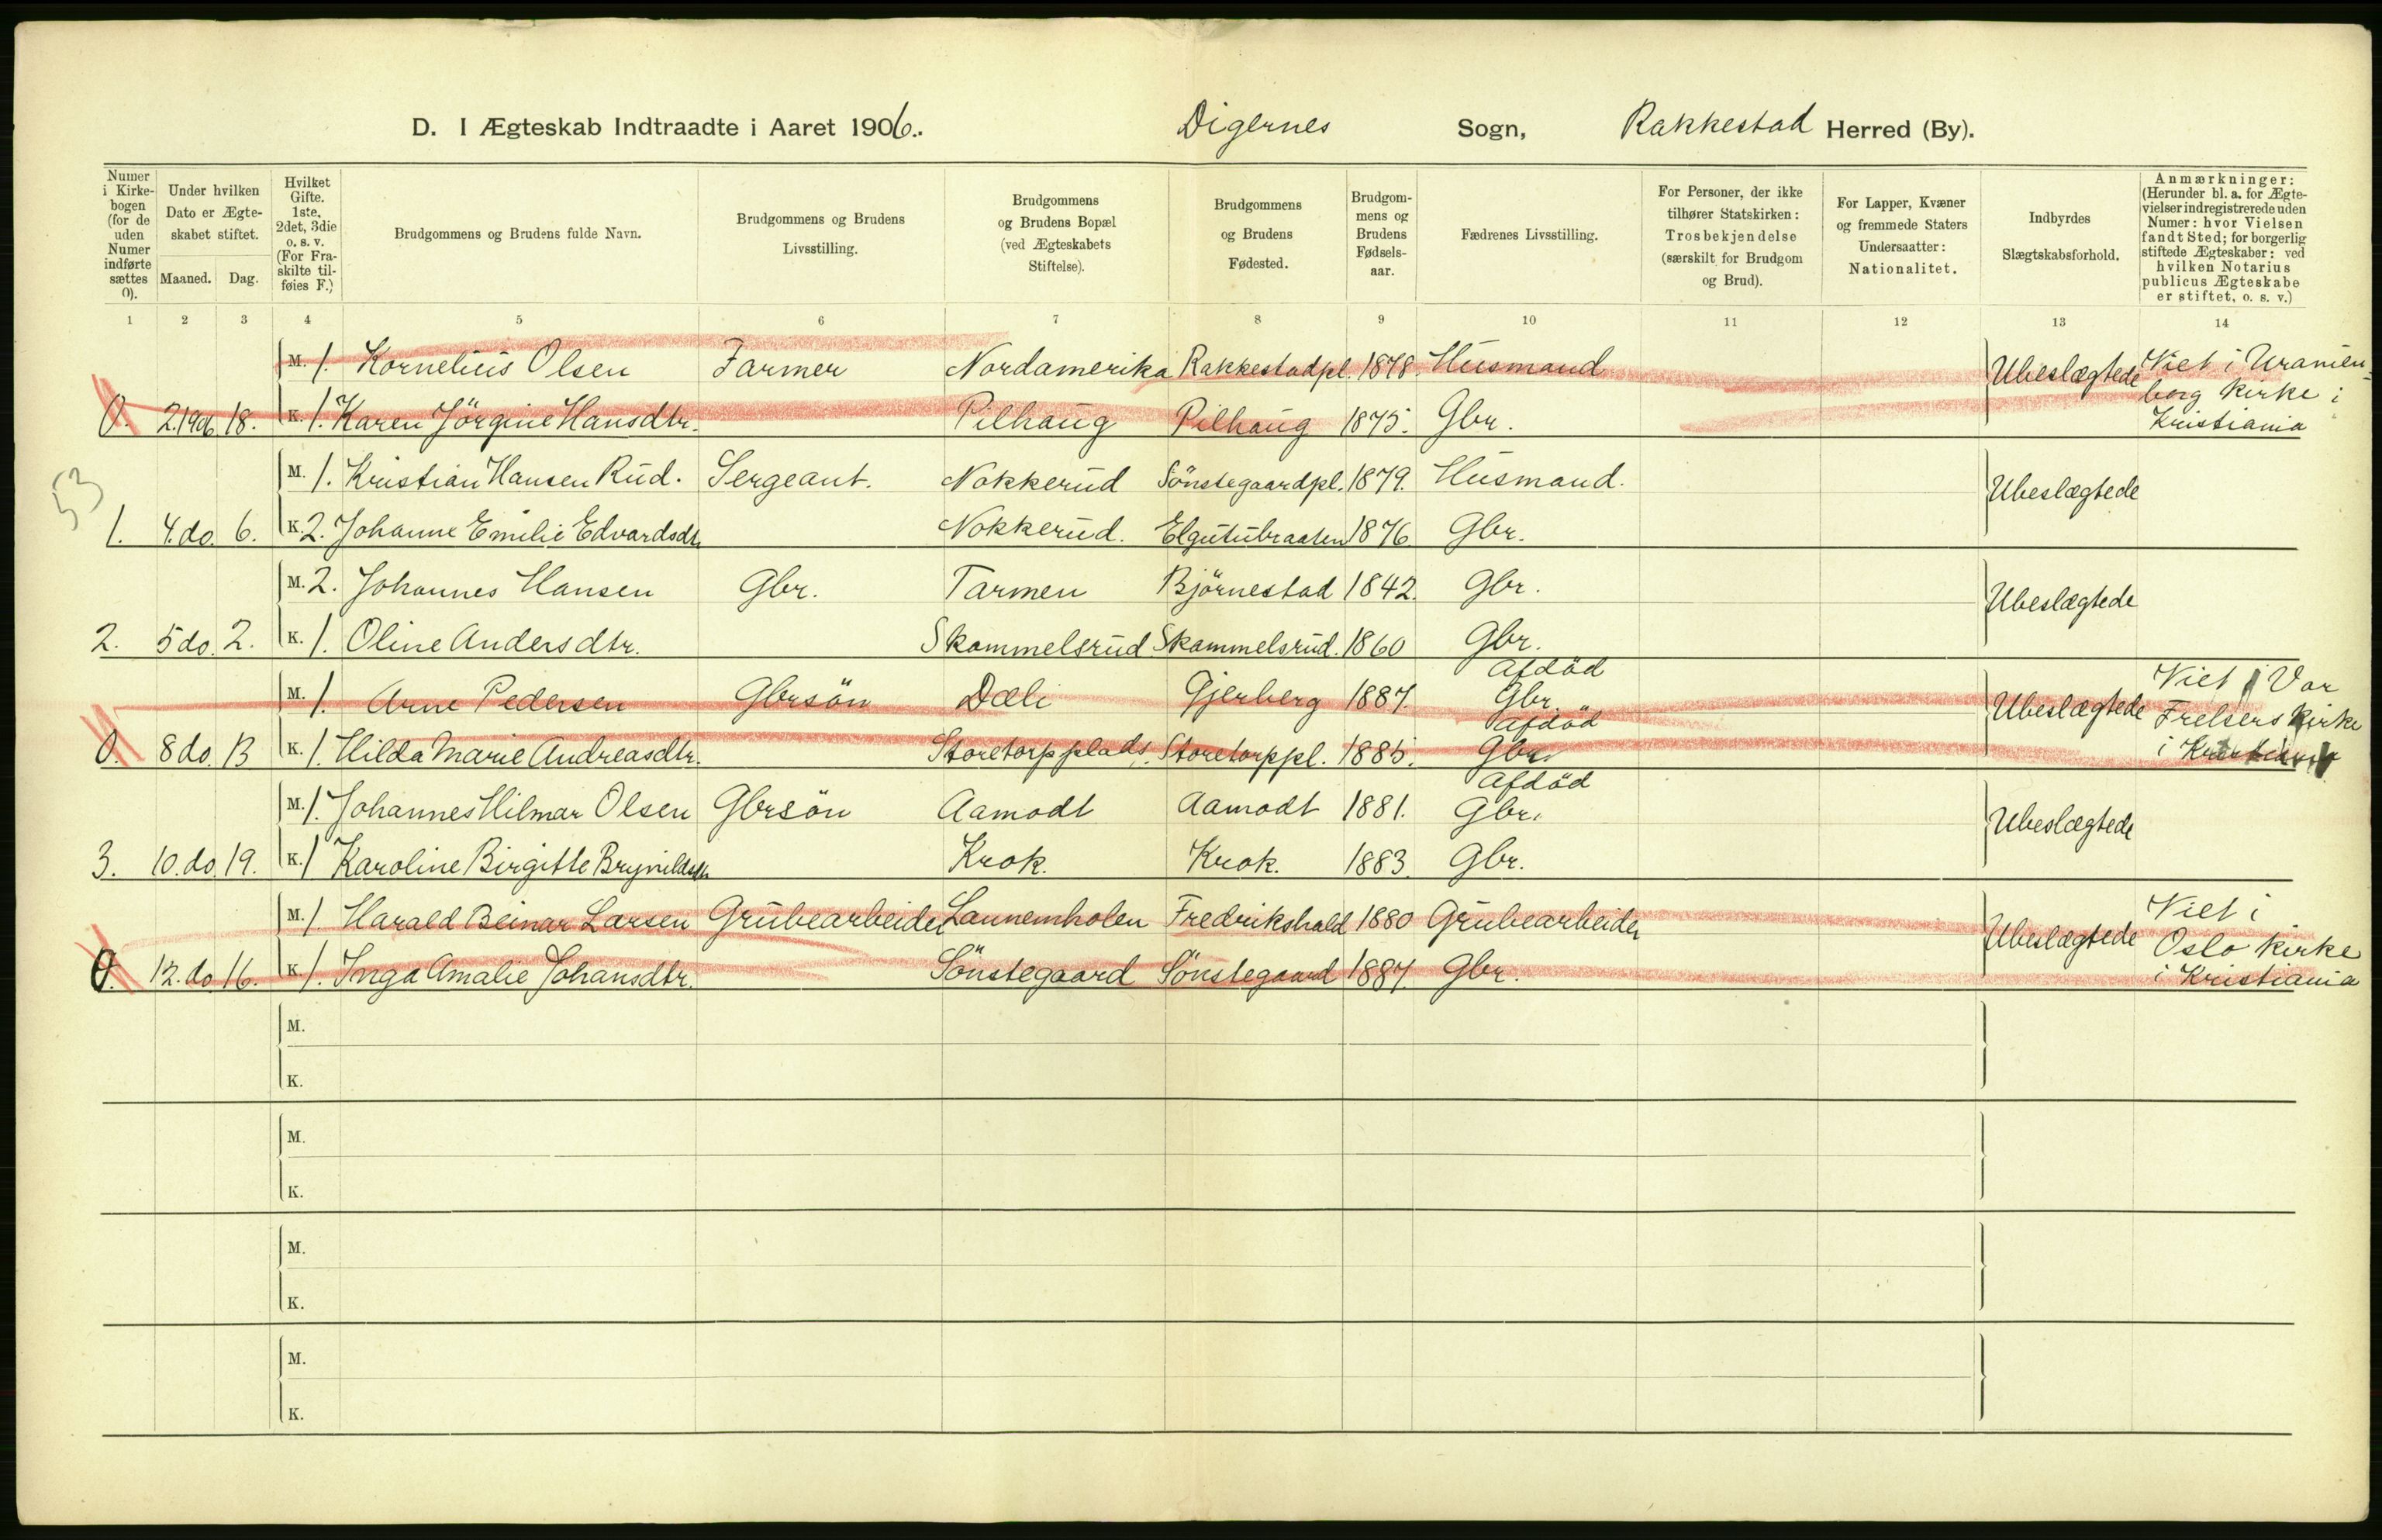 D. I Ægteskab Indtraadte i Aaret 1906. Digernes Sogn, Rakkestad Herred (By).
Numer i Kirkebogen (for de uden Numer indførte sættes 0).
Under hvilken Dato er Ægteskabet stiftet.
Maaned. Dag.
Hvilket Gifte. 1ste, 2det, 3die o. s. v. (For Fraskilte tilføies F.)
Brudgommens og Brudens fulde Navn.
Brudgommens og Brudens Livsstilling.
Brudgommens og Brudens Bopæl (ved Ægteskabets Stiftelse).
Brudgommens og Brudens Fødested.
Brudgommens og Brudens Fødselsaar.
Fædrenes Livsstilling.
For Personer, der ikke tilhører Statskirken: Trosbekjendelse (særskilt for Brudgom og Brud).
For Lapper, Kvæner og fremmede Staters Undersaatter: Nationalitet.
Indbyrdes Slægtskabsforhold.
Anmærkninger: (Herunder bl. a. for Ægtevielser indregistrerede uden Numer: hvor Vielsen fandt Sted; for borgerlig stiftede Ægteskaber: ved hvilken Notarius publicus Ægteskabe er stiftet, o. s. v.)
1 2 3 4 5 6 7 8 9 10 11 12 13 14
M. 1. Kornelius Olsen Farmer Nordamerika Rakkestadpl. 1878. Husmand Ubeslægtede Viet i Uranien-
borg Kirke i
0. 2.1906 18. K. 1. Karen Jörgine Hansdtr. Pilhaug Pilhaug 1875. Gbr. Kristiania
53
M. 1. Kristian Hansen Rud. Sergeant. Nokkerud Sönstegaardpl. 1879. Husmand. Ubeslægtede
1. 4. do. 6. K. 2. Johanne Emilie Edvardsdtr Nokkerud. Elgutubraaten 1876 Gbr.
M. 2. Johannes Hansen Gbr. Tarmen Björnestad 1842. Gbr. Ubeslægtede
2. 5 do. 2. K. 1. Oline Andersdtr. Skammelsrud Skammelsrud. 1860 Gbr.
afdöd
M. 1. Arne Pedersen Gbrsön Dæli Gjerberg 1887. Gbr. Ubeslægtede Viet i Vor
afdöd Frelsers Kirke
0. 8 do. 13 K. 1. Hilda Marie Andreasdtr. Storetorpplads. Storetorppl. 1885. Gbr. i Kristiania
afdöd
M. 1. Johannes Hilmar Olsen Gbrsön Aamodt Aamodt 1881. Gbr. Ubeslægtede
3. 10. do. 19. K. 1 Karoline Birgitte Brynildsdtr Krok. Krok. 1883. Gbr.
M. 1. Harald Beinar Larsen Grubearbeider Lannemholen Fredrikshald 1880 Grubearbeider Ubeslægtede Viet i
Oslo Kirke
0. 12. do. 16. K. 1. Inga Amalie Johansdtr. Sönstegaard Sönstegaard 1887. Gbr. i Kristiania
M.
K.
M.
K.
M.
K.
M.
K.